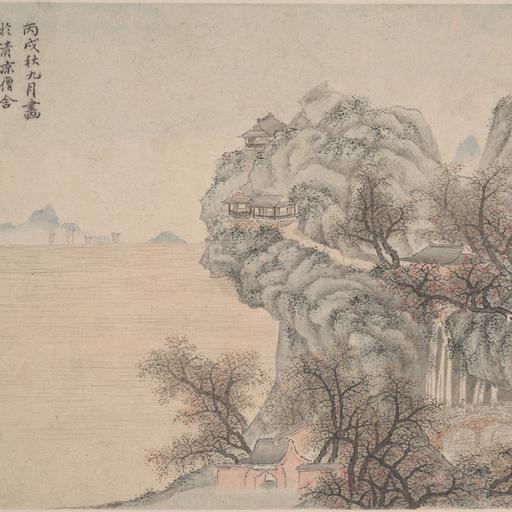 丙戌秋九月畫
於清涼僧舍